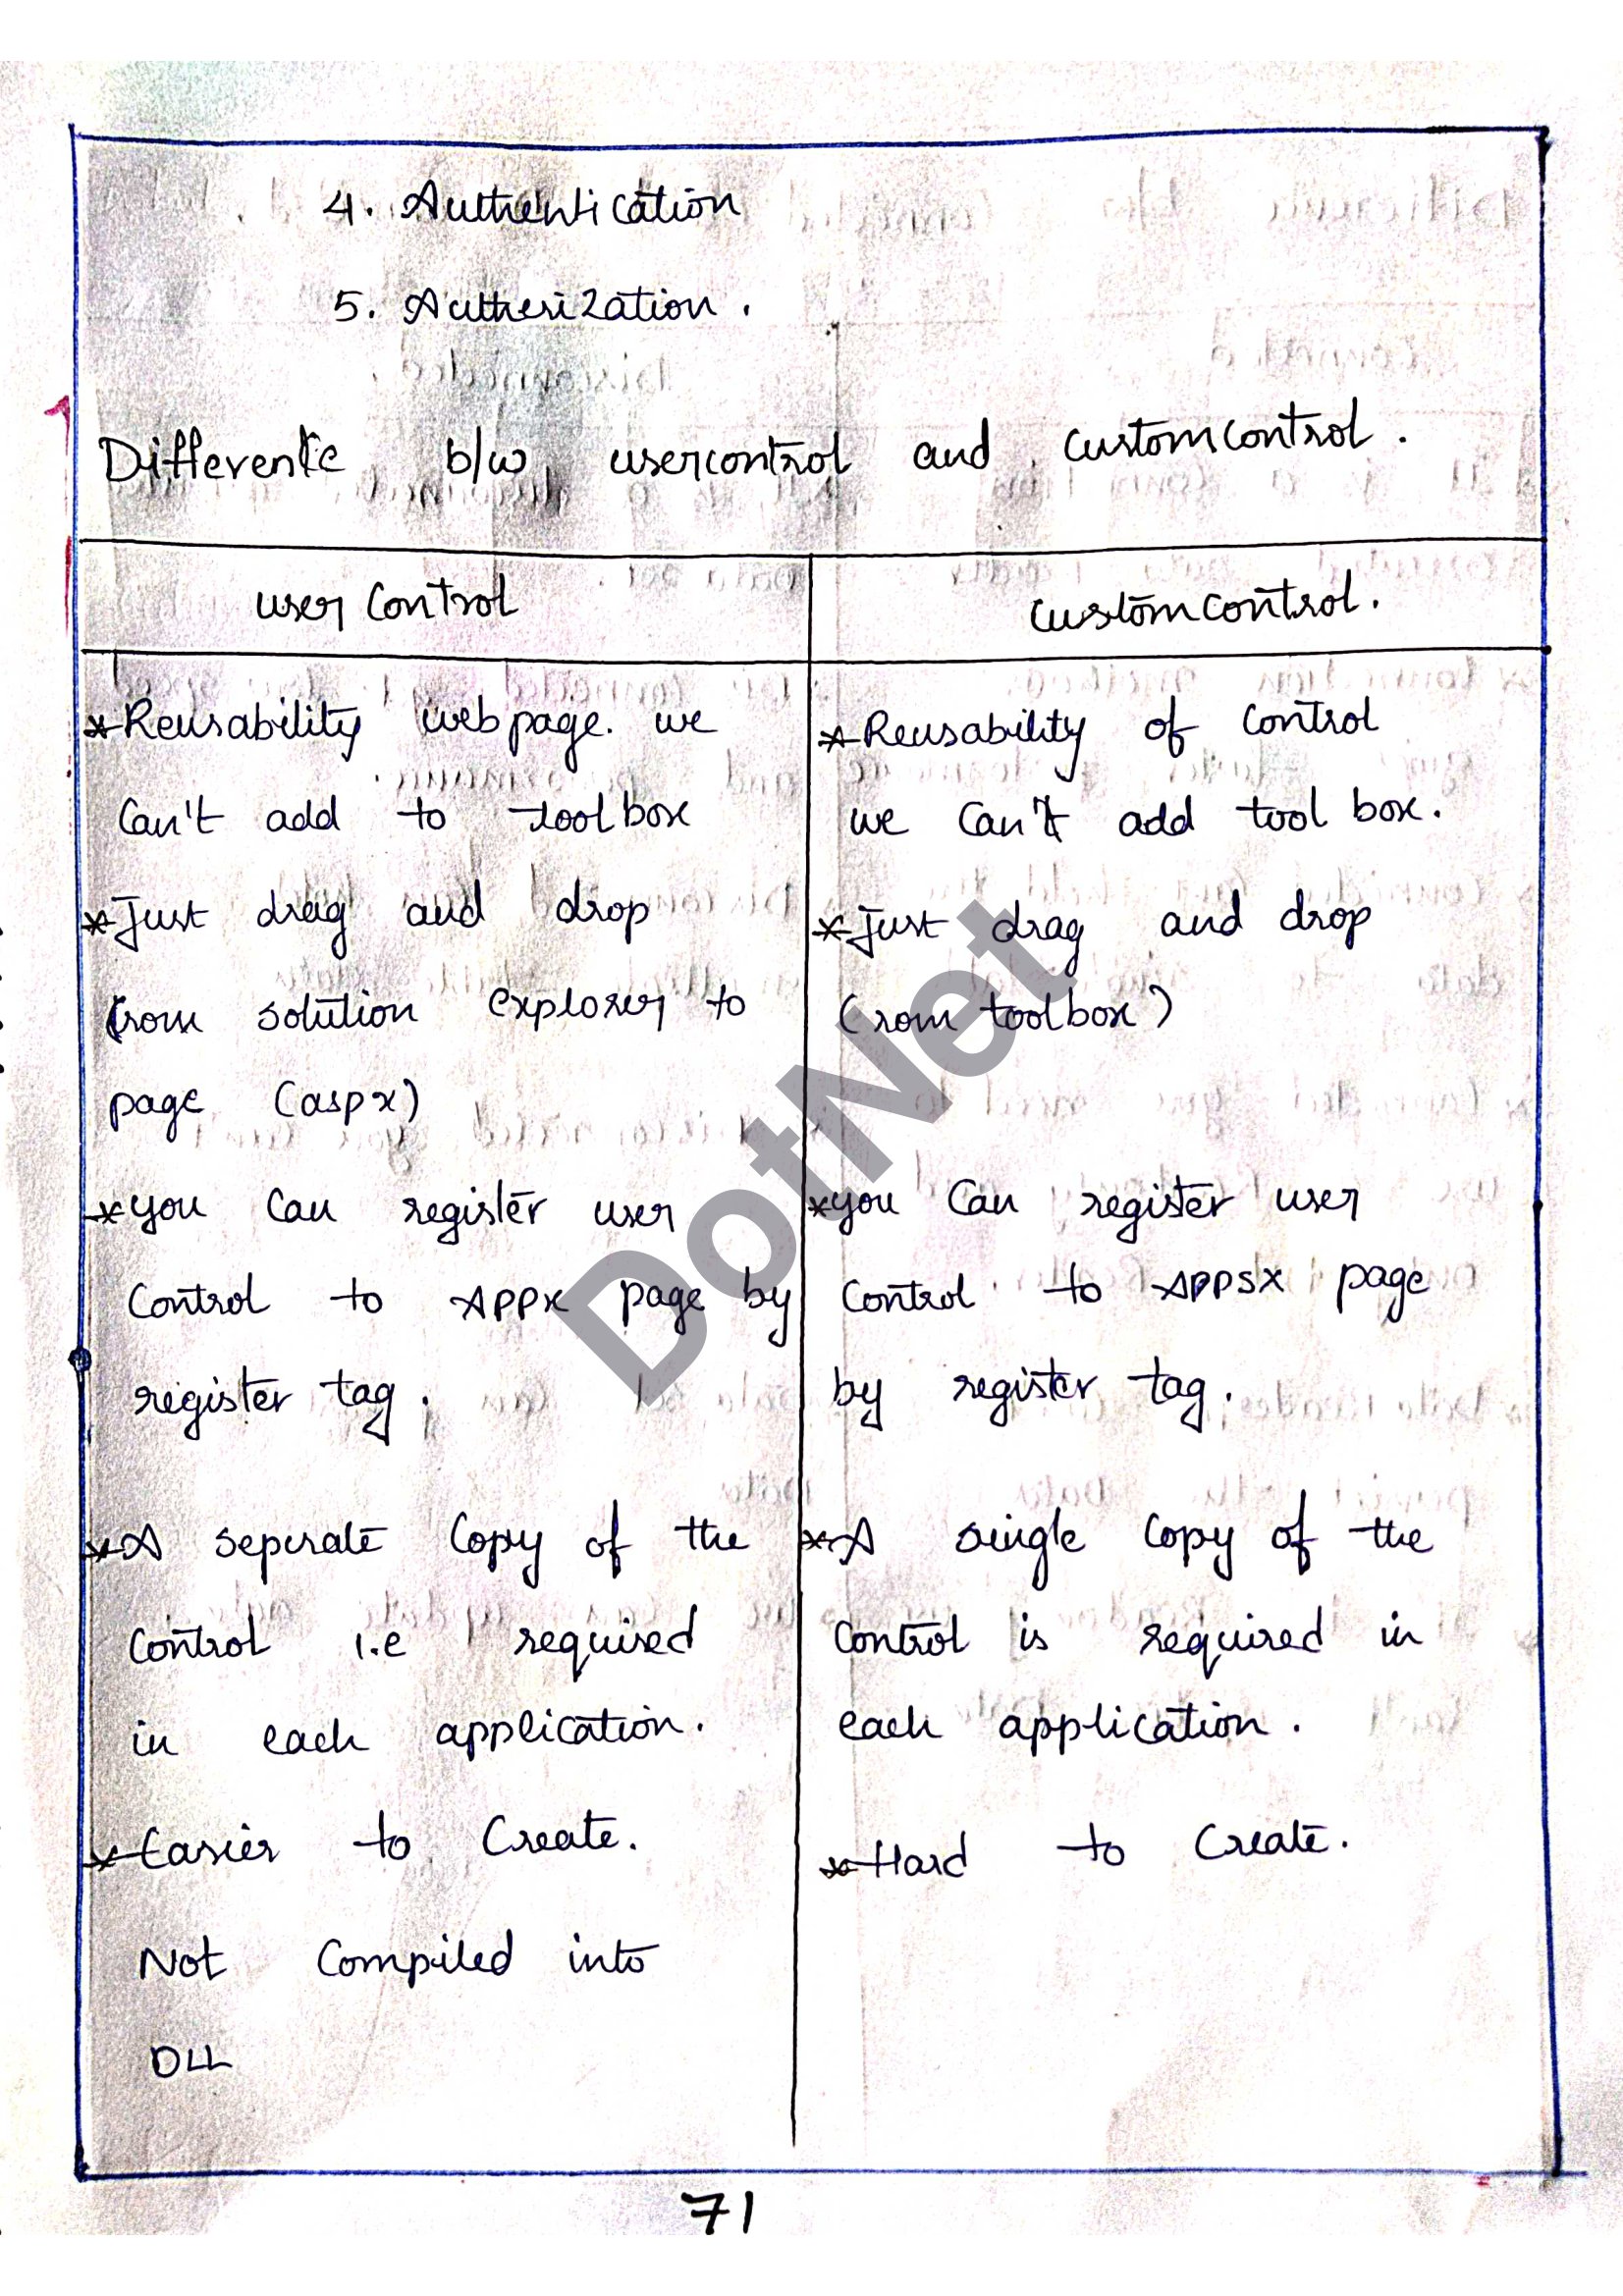 4. Authentication
5. Autherization.
Differente b/w usercontrol and customcontrol.
user Control
customcontrol.
*Reusability webpage. we
Can't add to toolbox
*Just drag and drop
(rom solution explorer to
page (aspx)
*you can register user
Control to APPX page by
register tag.
*A seperate copy of the
Control i.e required
in each application.
*Easier to Create.
Not Compiled into
DLL
*Reusability of control
we can't add tool box.
*Just drag and drop
(rom toolbox)
*you Can register user
Control to APPSX page
by register tag.
*A single copy of the
Control is required in
each application.
*Hard to Create.
DotNet
71